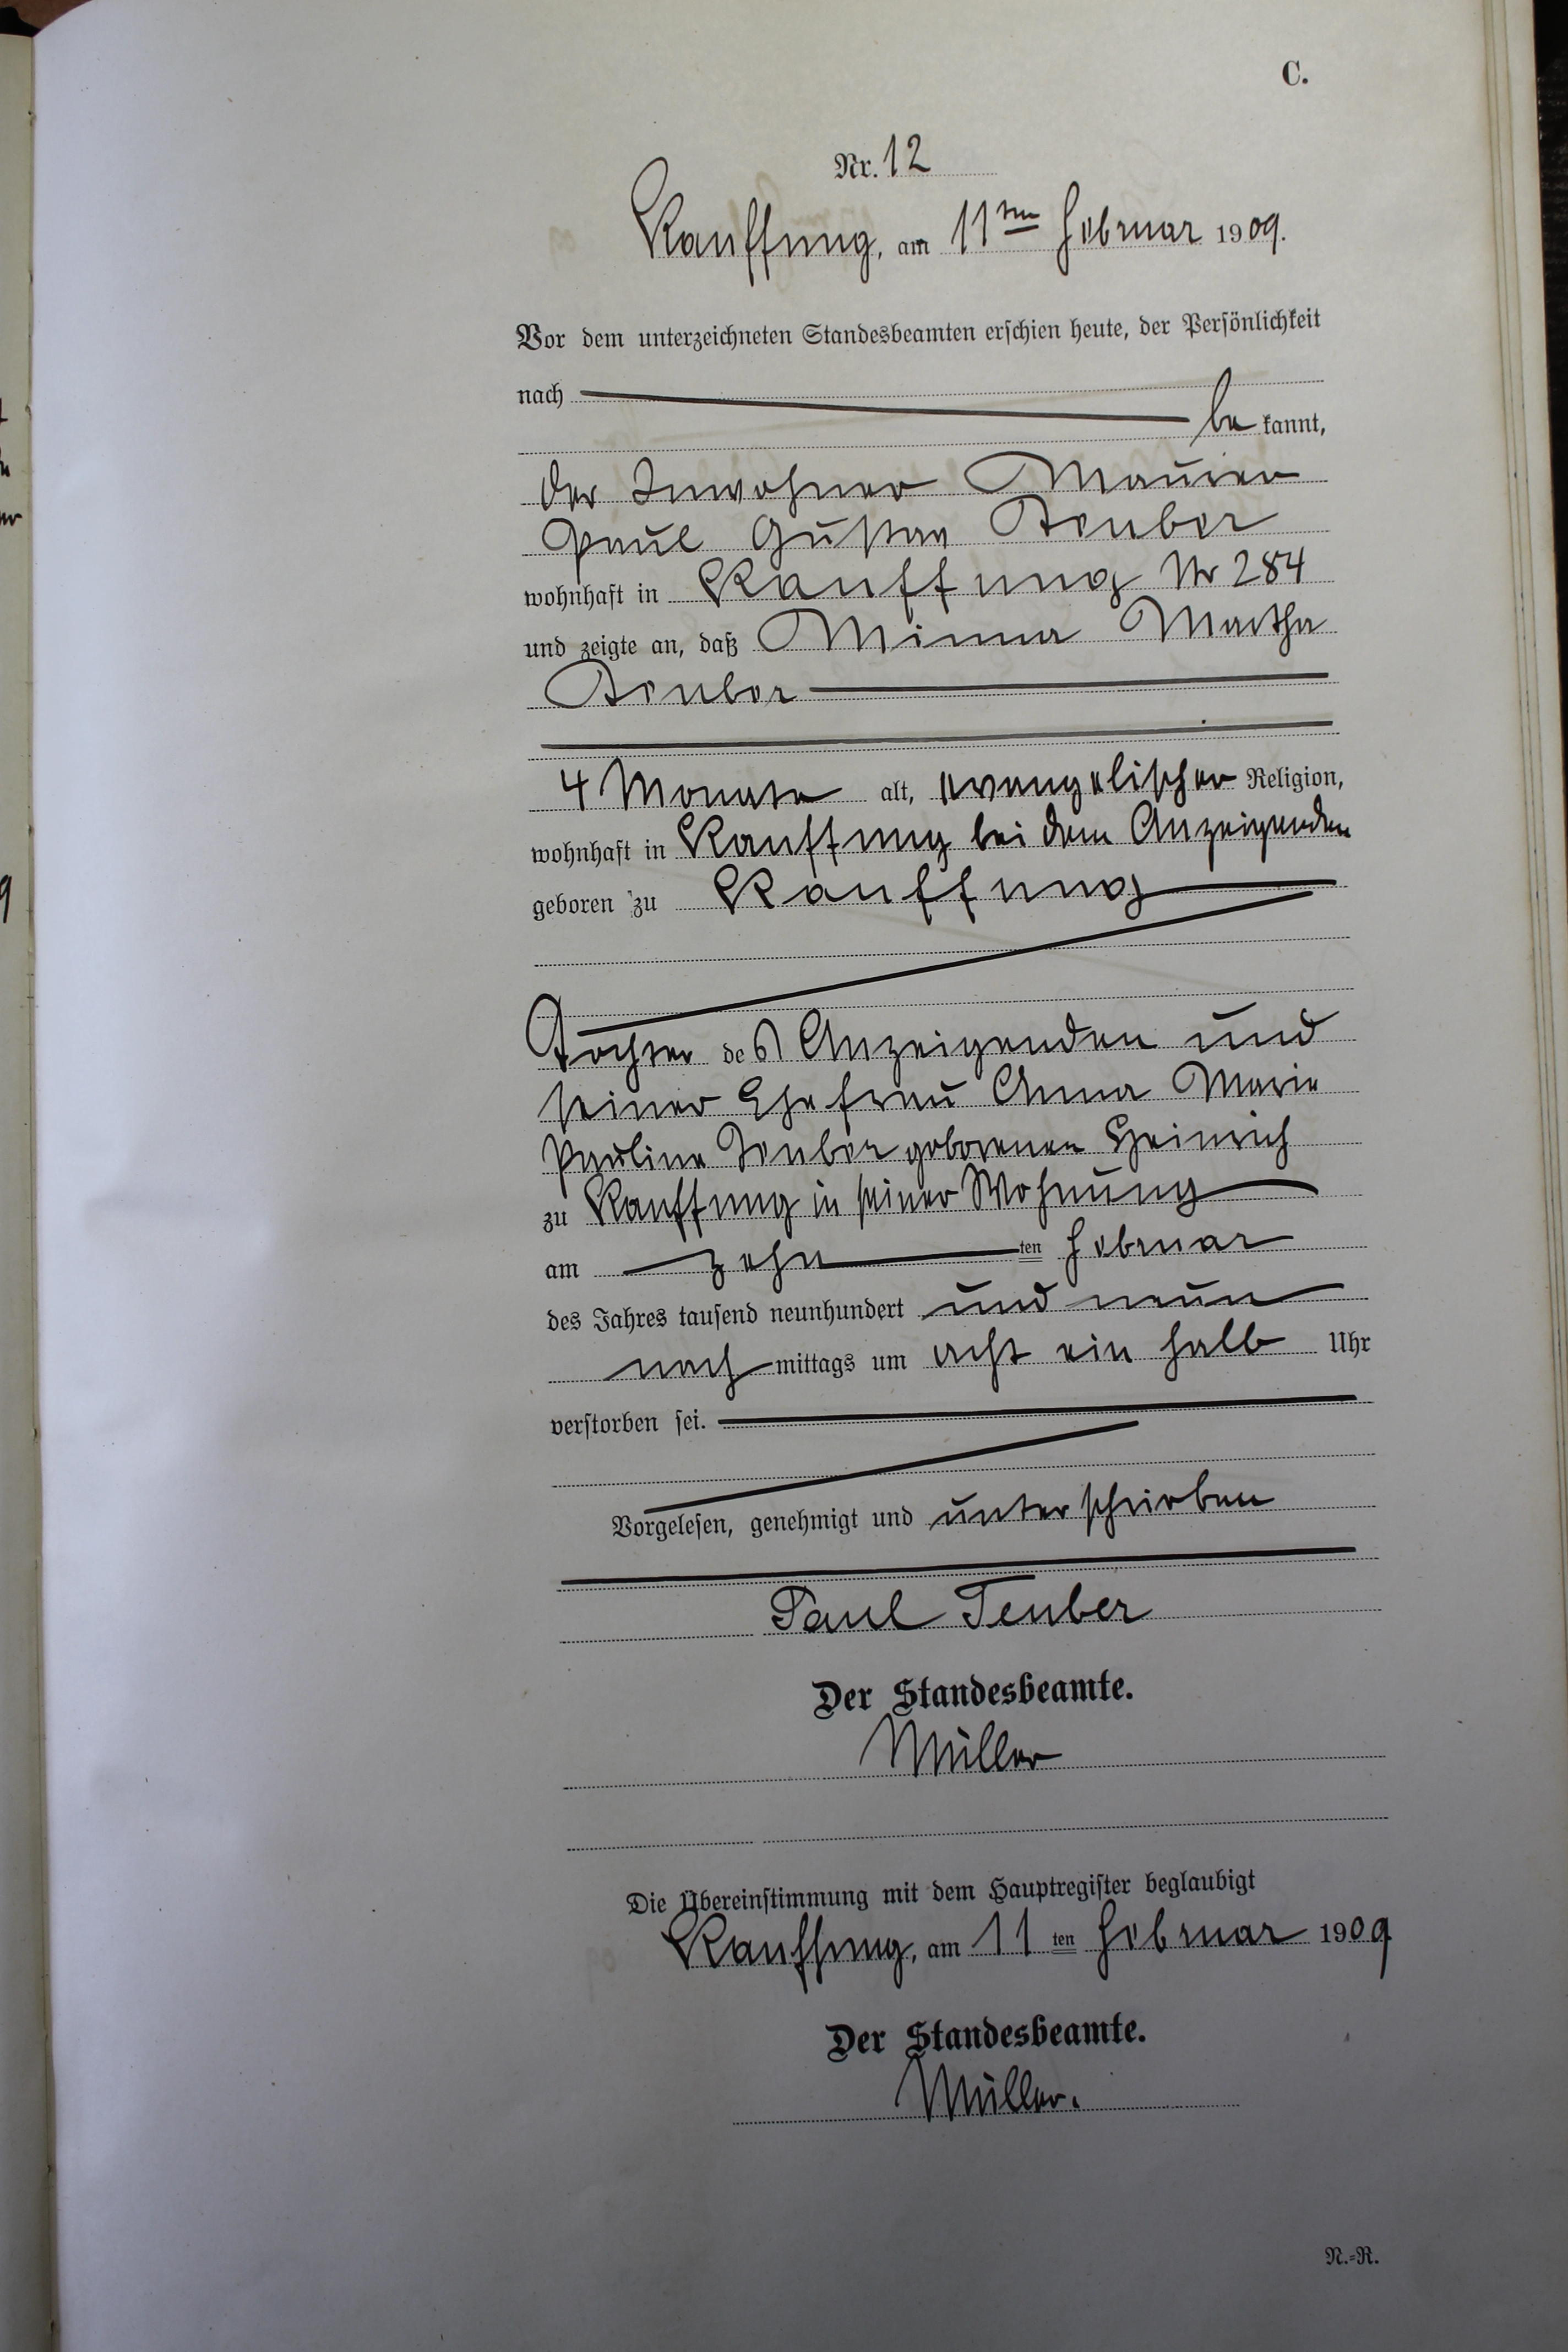 C.
Nr. 12
Kauffung, am 11ten Februar 1909.
Vor dem unterzeichneten Standesbeamten erschien heute, der Persönlichkeit
nach
be kannt,
der Inwohner Maurer
Paul Gustav Teuber
wohnhaft in Kauffung Nr 284
und zeigte an, daß Minna Martha
Teuber
4 Monate alt, evangelischer Religion,
wohnhaft in Kauffung bei dem Anzeigenden
geboren zu Kauffung
Tochter des Anzeigenden und
seiner Ehefrau Anna Marie
Pauline Teuber geborenen Heinrich
zu Kauffung in seiner Wohnung
am zehn ten Februar
des Jahres tausend neunhundert und neun
nach mittags um acht ein halb Uhr
verstorben sei.
Vorgelesen, genehmigt und unterschrieben
Paul Teuber
Der Standesbeamte.
Müller
Die Übereinstimmung mit dem Hauptregister beglaubigt
Kauffung, am 11 ten Februar 1909
Der Standesbeamte.
Müller.
N.=R.